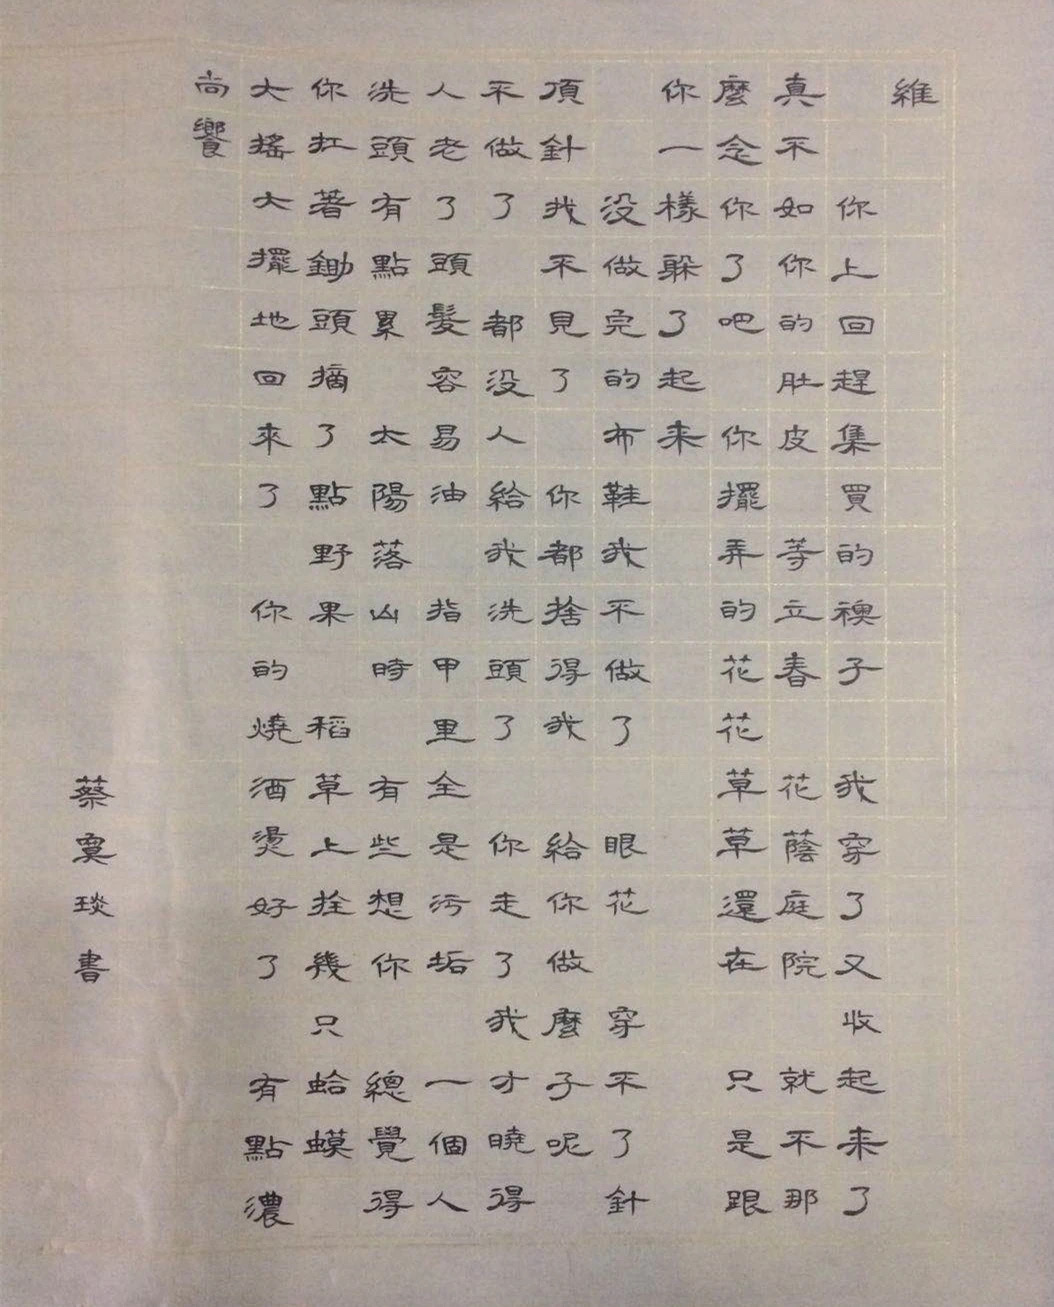 維
你上回趕集買的襖子 我穿了又收起来了
真不如你的肚皮 等立春 花蔭庭院 就不那
麼念你了吧 你擺弄的花花草草還在 只是跟
你一樣躲了起来
没做完的布鞋我不做了 眼花 穿不了針
頂針找不見了 你都捨得我 給你做麼子呢
不做了 都没人給我洗頭了 你走了我才曉得
人老了頭髮容易油 指甲里全是污垢 一個人
洗頭有點累 太陽落山時 有些想你 總覺得
你扛著鋤頭摘了點野果 稻草上拴幾只蛤蟆
大搖大擺地回來了 你的燒酒燙好了 有點濃
尚饗
蔡寞琰書